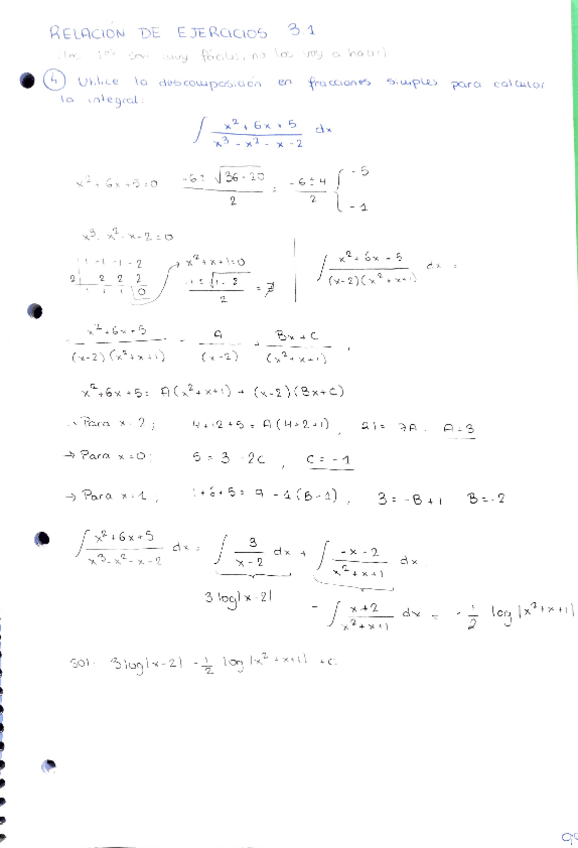 RELACIÓN DE EJERCICIOS 3.1
(los 1os son muy fáciles, no los voy a hacer)
④ Utilice la descomposición en fracciones simples para calcular
la integral:
∫ (x² + 6x + 5)/(x³ - x² - x - 2) dx
x² + 6x + 5 = 0 (-6 ± √(36 - 20))/2 = (-6 ± 4)/2 { -5
-1
x³ - x² - x - 2 = 0
1 -1 -1 -2 → x² + x + 1 = 0 ∫ (x² + 6x + 5)/((x-2)(x² + x + 1)) dx =
2| 2 2 2
1 1 1 |0
(x² + 6x + 5)/((x-2)(x² + x + 1)) = A/(x-2) + (Bx + C)/(x² + x + 1) ,
x² + 6x + 5 = A(x² + x + 1) + (x-2)(Bx + C)
→ Para x = 2; 4 + 12 + 5 = A(4 + 2 + 1), 21 = 7A. A = 3
→ Para x = 0; 5 = 3 - 2C , C = -1
→ Para x = 1, 1 + 6 + 5 = 9 - 1(B - 1), 3 = -B + 1 B = -2
∫ (x² + 6x + 5)/(x³ - x² - x - 2) dx = ∫ 3/(x-2) dx + ∫ (-x - 2)/(x² + x + 1) dx
3 log|x-2| - ∫ (x + 2)/(x² + x + 1) dx = - 1/2 log|x² + x + 1|
SOL: 3 log|x-2| - 1/2 log|x² + x + 1| + C